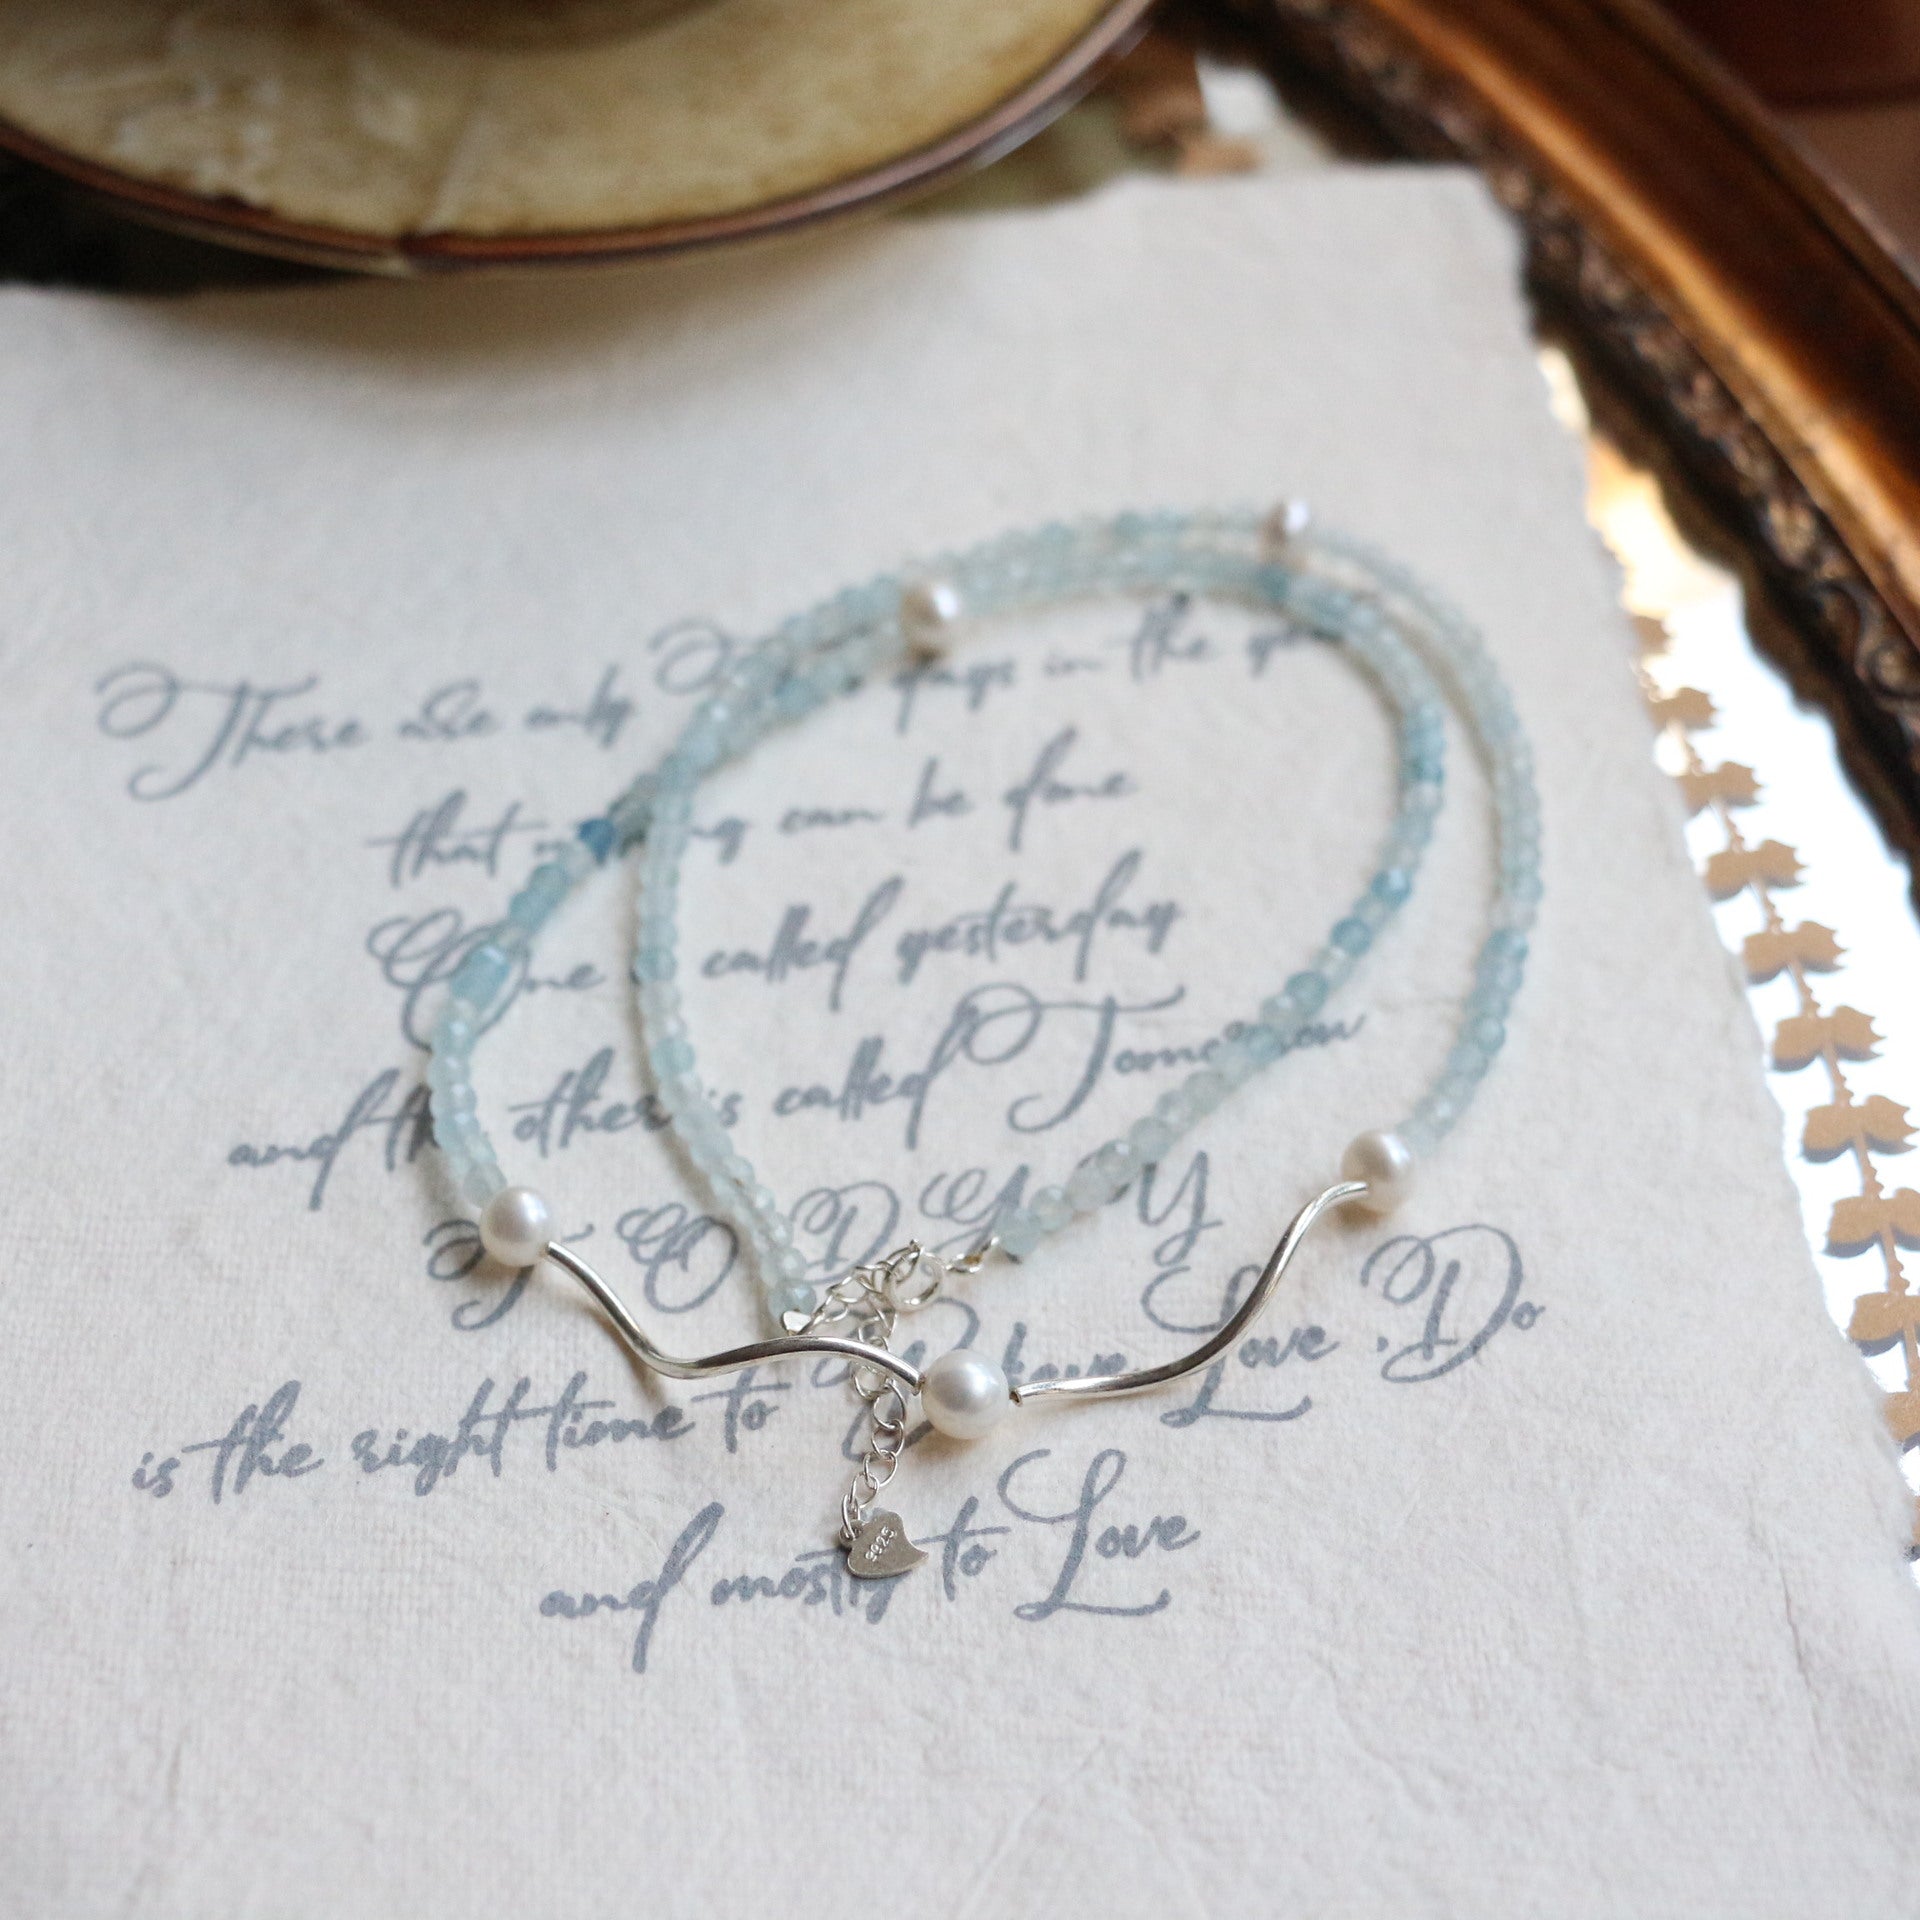 There are only days in the
that can be done
One called yesterday
and the other is called Tomorrow
TODAY
is the right time to Love, Do
and mostly to Love
S925